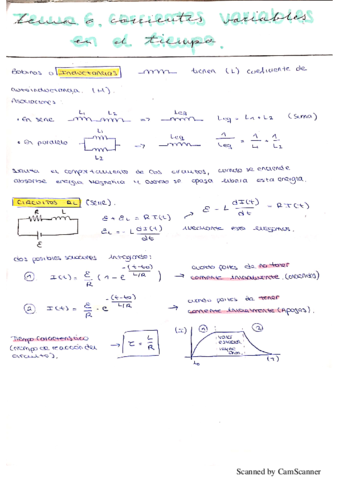 Tema 6. corrientes variables
en el tiempo.
Bobinas o Inductancias tienen (L) coeficiente de
autoinducción. (H).
Asociaciones:
• En serie L₁ L₂ => Leq Leq = L₁ + L₂ (Suma)
• En paralelo L₁ L₂ => Leq 1/Leq = 1/L₁ = 1/L₂
el comportamiento de los circuitos, cuando se enciende
absorbe energía magnética y cuando se apaga libera esta energía.
CIRCUITOS RL (SERIE).
R L ε
ε + εL = R I(t)
εL = -L dI(t)/dt
ε - L dI(t)/dt = R I(t)
dos posibles soluciones integrando:
① I(t) = ε/R (1 - e^(-(t-t₀)/(L/R))) → cuando partes de no tener corriente inicialmente (enciendes)
② I(t) = ε/R · e^(-(t-t₀)/(L/R)) → cuando partes de tener corriente inicialmente (Apagas).
Tiempo característico
(tiempo de reacción del
circuito).
→ τ = L/R
(I) ① ② t₀ (t)
Scanned by CamScanner